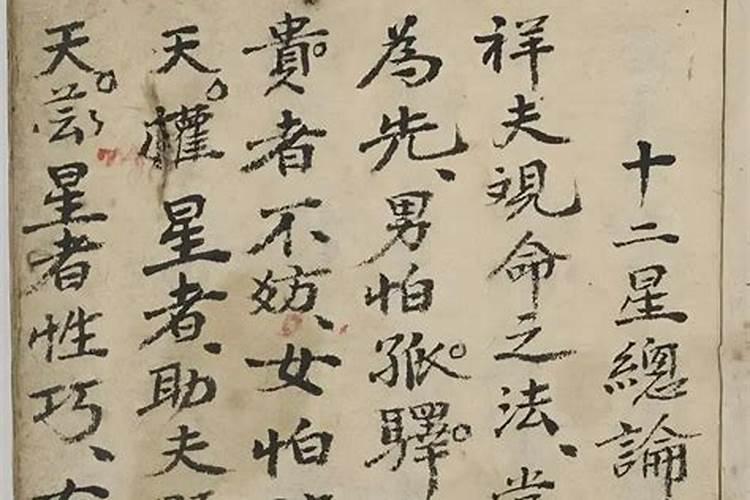 十二星總論
祥夫观命之法、
為先、男怕孤。驛。
貴。者不妨、女怕
天。權星者、助夫
天。芸星者性巧、